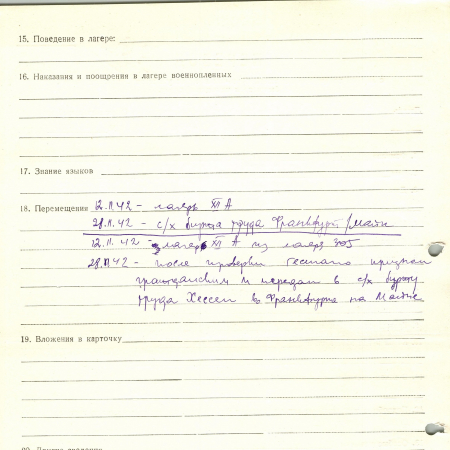 15. Поведение в лагере:
16. Наказания и поощрения в лагере военнопленных
17. Знание языков
18. Перемещения 12.11.42 - лагерь XII А
28.11.42 - с/х биржа труда Франкфурт/Майн
12.11.42 - лагерь XII А из лагеря 305
28.11.42 - после проверки гестапо признан
гражданским и передан в с/х биржу
труда Хессен во Франкфурте на Майне
19. Вложения в карточку